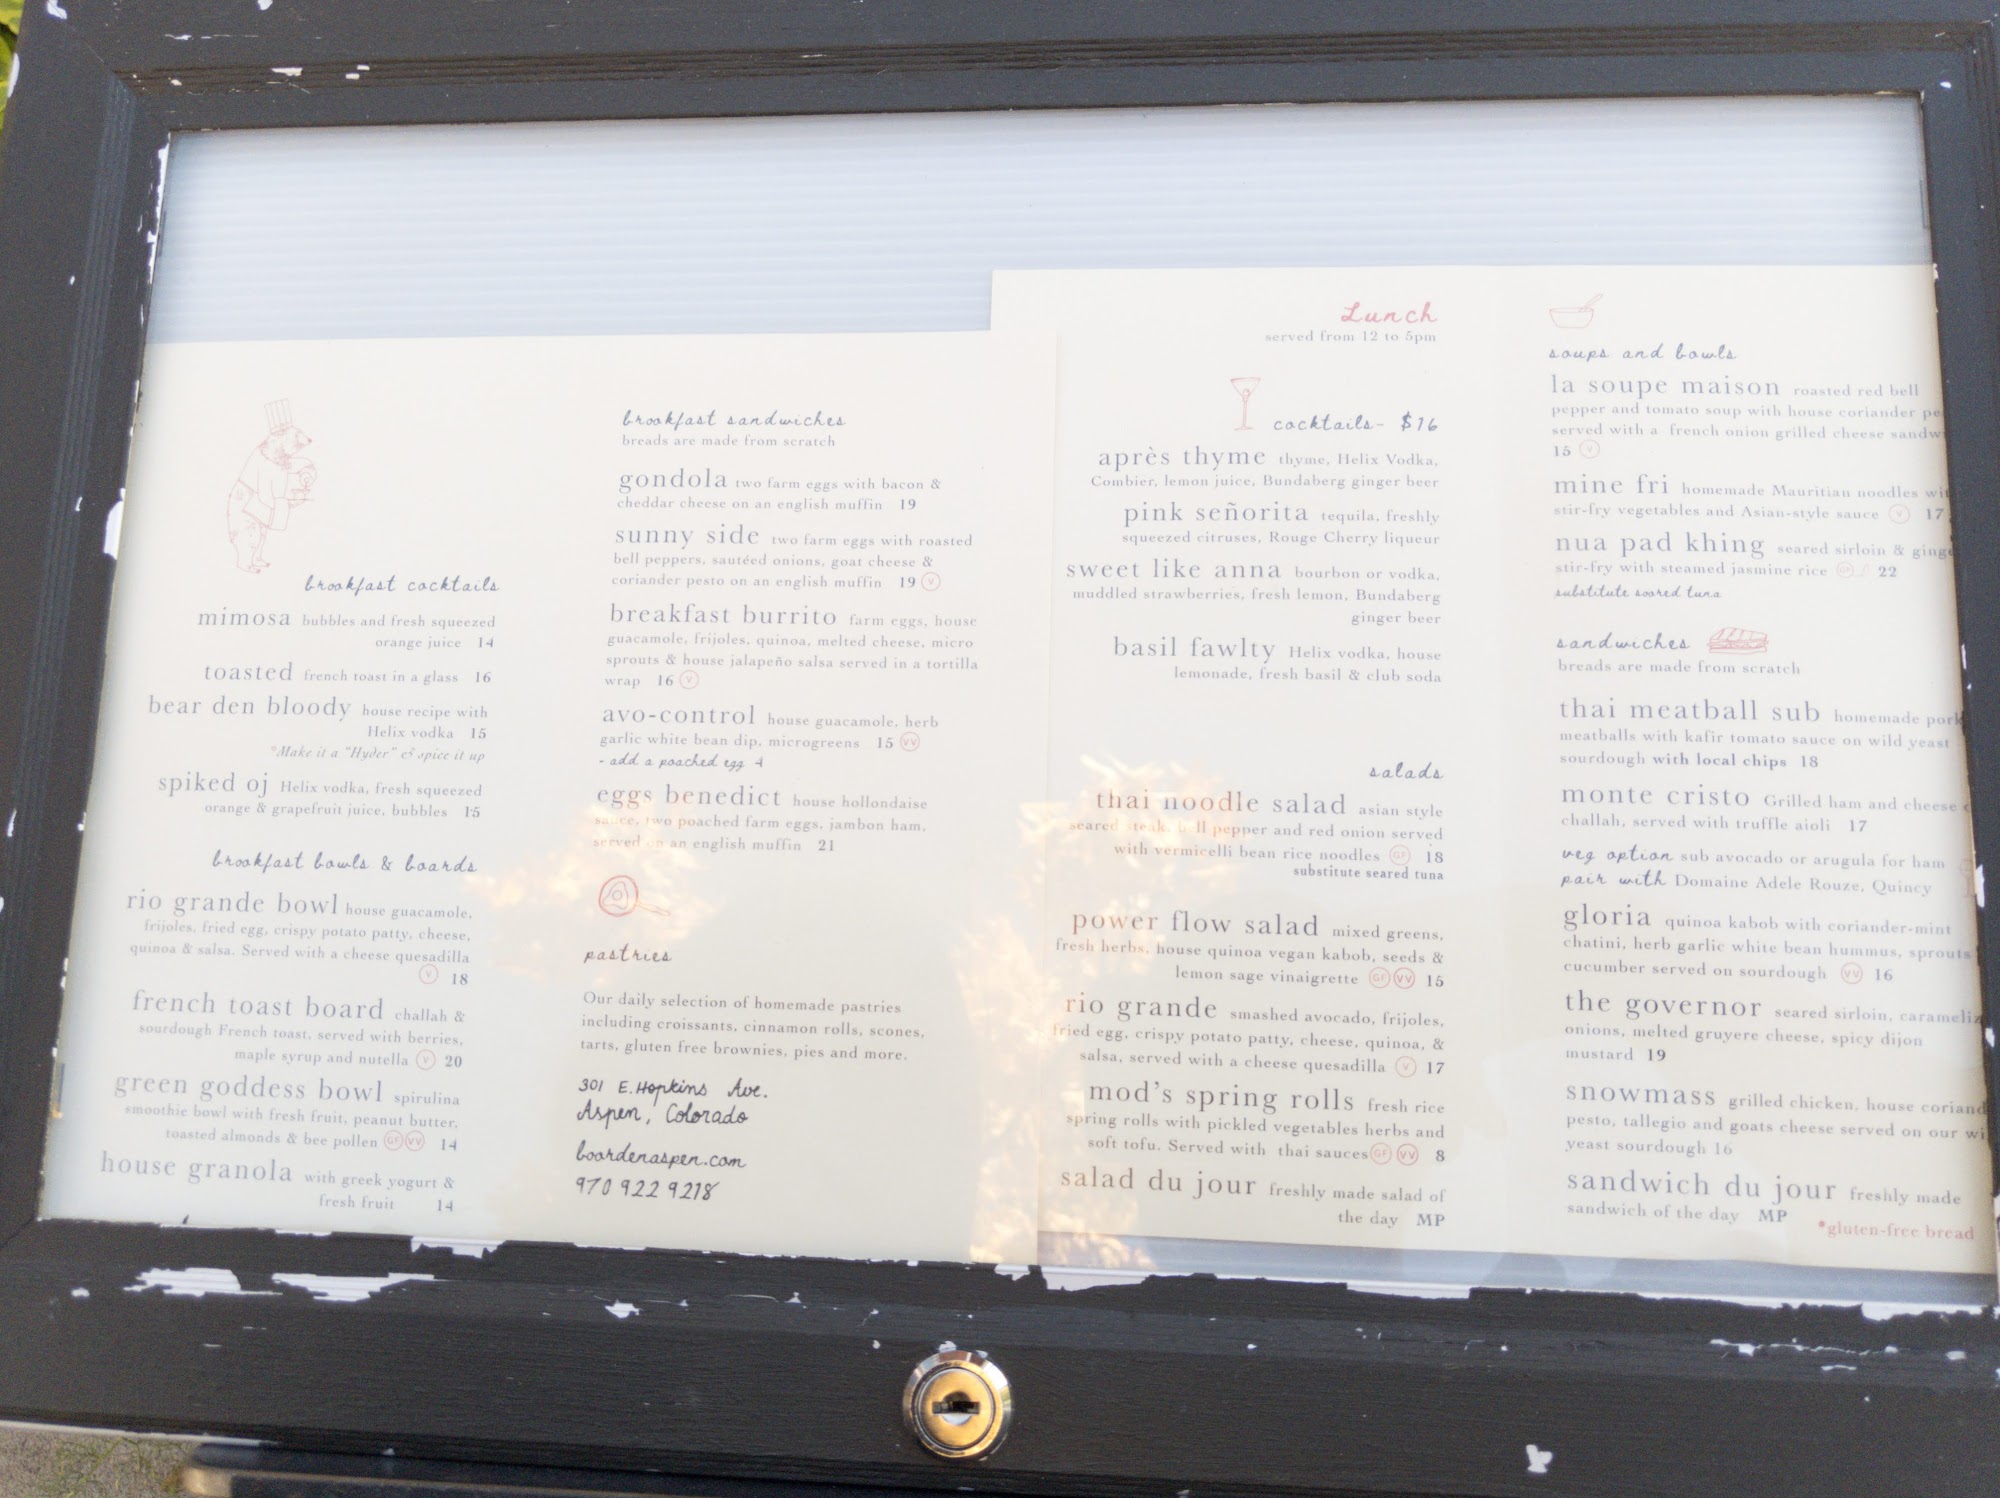 breakfast cocktails
mimosa bubbles and fresh squeezed
orange juice 14
toasted french toast in a glass 16
bear den bloody house recipe with
Helix vodka 15
*Make it a "Hyder" & spice it up
spiked oj Helix vodka, fresh squeezed
orange & grapefruit juice, bubbles 15
breakfast bowls & boards
rio grande bowl house guacamole,
frijoles, fried egg, crispy potato patty, cheese,
quinoa & salsa. Served with a cheese quesadilla
V 18
french toast board challah &
sourdough French toast, served with berries,
maple syrup and nutella V 20
green goddess bowl spirulina
smoothie bowl with fresh fruit, peanut butter,
toasted almonds & bee pollen GF VV 14
house granola with greek yogurt &
fresh fruit 14
breakfast sandwiches
breads are made from scratch
gondola two farm eggs with bacon &
cheddar cheese on an english muffin 19
sunny side two farm eggs with roasted
bell peppers, sautéed onions, goat cheese &
coriander pesto on an english muffin 19 V
breakfast burrito farm eggs, house
guacamole, frijoles, quinoa, melted cheese, micro
sprouts & house jalapeño salsa served in a tortilla
wrap 16 V
avo-control house guacamole, herb
garlic white bean dip, microgreens 15 VV
- add a poached egg 4
eggs benedict house hollondaise
sauce, two poached farm eggs, jambon ham,
served on an english muffin 21
pastries
Our daily selection of homemade pastries
including croissants, cinnamon rolls, scones,
tarts, gluten free brownies, pies and more.
301 E. Hopkins Ave.
Aspen, Colorado
beardenaspen.com
970 922 9218
Lunch
served from 12 to 5pm
cocktails- $16
après thyme thyme, Helix Vodka,
Combier, lemon juice, Bundaberg ginger beer
pink señorita tequila, freshly
squeezed citruses, Rouge Cherry liqueur
sweet like anna bourbon or vodka,
muddled strawberries, fresh lemon, Bundaberg
ginger beer
basil fawlty Helix vodka, house
lemonade, fresh basil & club soda
salads
thai noodle salad asian style
seared steak, bell pepper and red onion served
with vermicelli bean rice noodles GF 18
substitute seared tuna
power flow salad mixed greens,
fresh herbs, house quinoa vegan kabob, seeds &
lemon sage vinaigrette GF VV 15
rio grande smashed avocado, frijoles,
fried egg, crispy potato patty, cheese, quinoa, &
salsa, served with a cheese quesadilla V 17
mod's spring rolls fresh rice
spring rolls with pickled vegetables herbs and
soft tofu. Served with thai sauces GF VV 8
salad du jour freshly made salad of
the day MP
soups and bowls
la soupe maison roasted red bell
pepper and tomato soup with house coriander pe
served with a french onion grilled cheese sandw
15 V
mine fri homemade Mauritian noodles wit
stir-fry vegetables and Asian-style sauce V 17
nua pad khing seared sirloin & ginge
stir-fry with steamed jasmine rice GF 22
substitute seared tuna
sandwiches
breads are made from scratch
thai meatball sub homemade pork
meatballs with kafir tomato sauce on wild yeast
sourdough with local chips 18
monte cristo Grilled ham and cheese
challah, served with truffle aioli 17
veg option sub avocado or arugula for ham
pair with Domaine Adele Rouze, Quincy
gloria quinoa kabob with coriander-mint
chatini, herb garlic white bean hummus, sprouts
cucumber served on sourdough VV 16
the governor seared sirloin, carameliz
onions, melted gruyere cheese, spicy dijon
mustard 19
snowmass grilled chicken, house coriand
pesto, tallegio and goats cheese served on our wi
yeast sourdough 16
sandwich du jour freshly made
sandwich of the day MP
*gluten-free bread